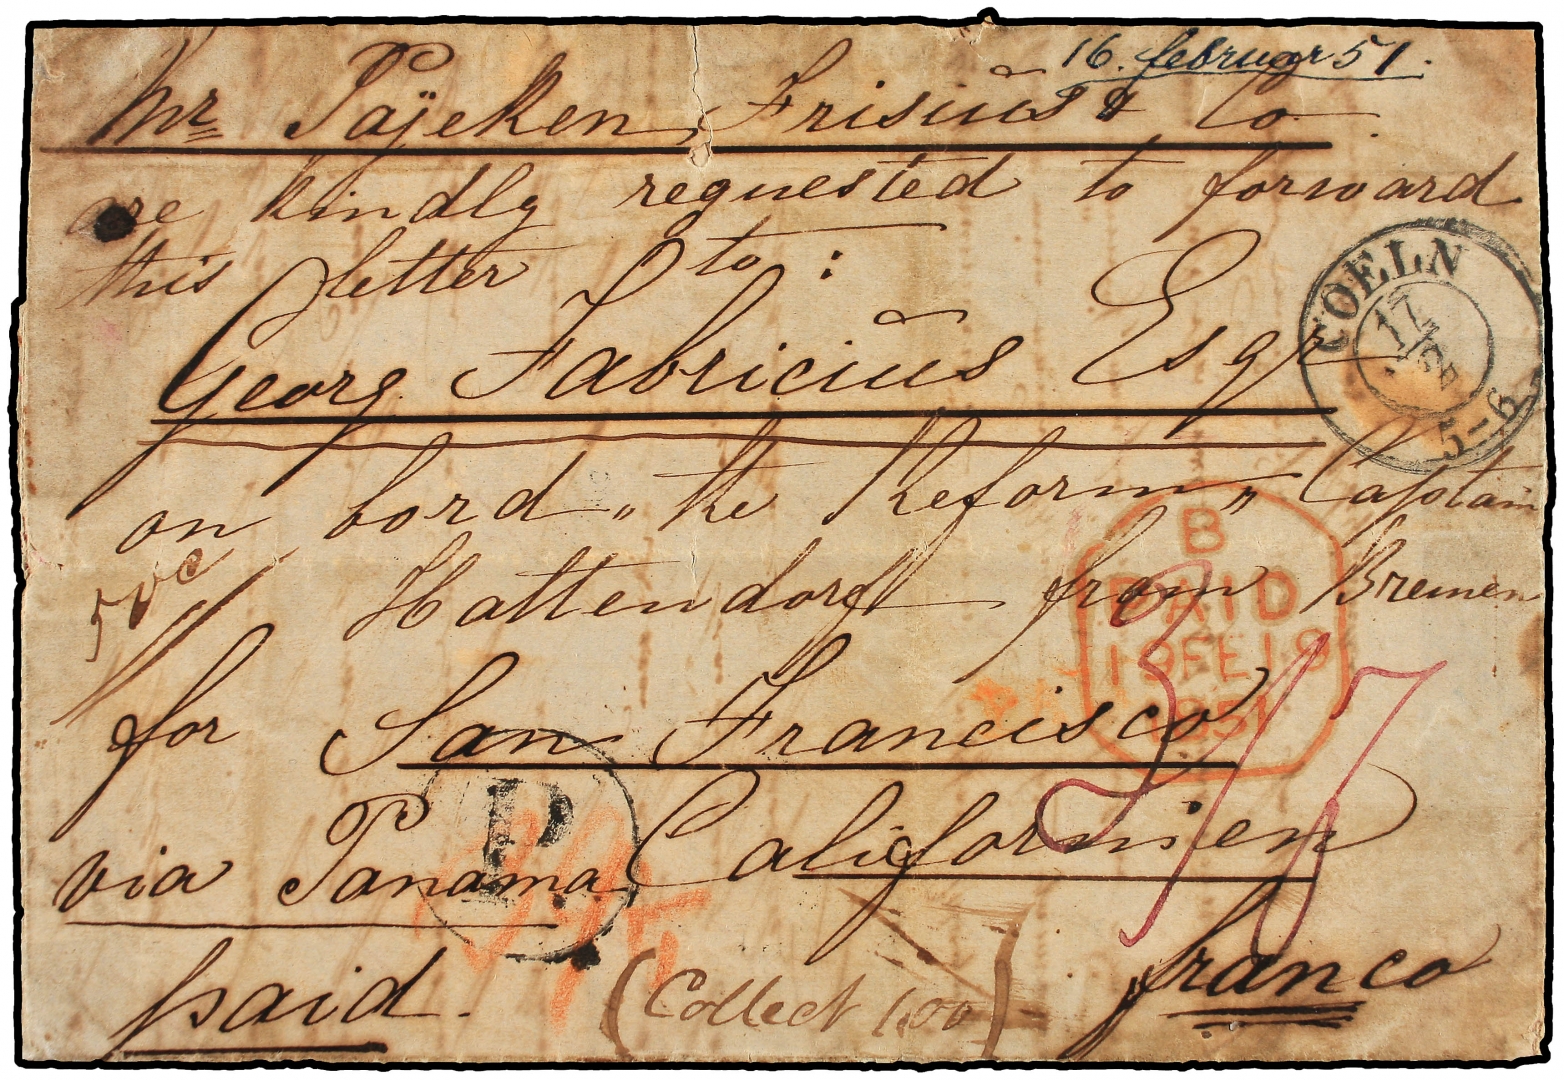 16. februar 51.
Mr Pajeken, Frisius & Co.
are kindly requested to forward
this letter to:
Georg Fabricius Esqr
COELN
17
2
5-6
on bord „the Reform„ Captain
Hattendorf from Bremen
B
PAID
19FE19
1851
for San Francisco
via Panama Californien
P
paid. franco
(Collect 1,00)